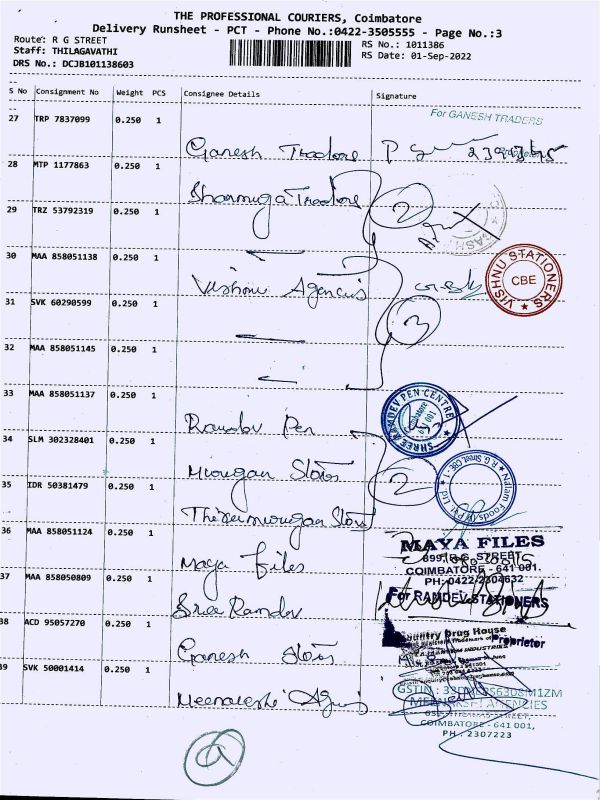 THE PROFESSIONAL COURIERS, Coimbatore
Delivery Runsheet - PCT - Phone No.:0422-3505555 - Page No.:3
Route: R G STREET
Staff: THILAGAVATHI
DRS No.: DCJB101138603
RS No.: 1011386
RS Date: 01-Sep-2022
S No Consignment No Weight PCS Consignee Details Signature
27 TRP 7837099 0.250 1 Ganesh Traders
For GANESH TRADERS
28 MTP 1177863 0.250 1 Shanmuga Traders
2
29 TRZ 53792319 0.250 1
30 MAA 858051138 0.250 1 Vishnu Agencies
VISHNU STATIONERS CBE
31 SVK 60290599 0.250 1
3
32 MAA 858051145 0.250 1
33 MAA 858051137 0.250 1 Ramdev Pen
SHREE RAMDEV PEN CENTRE Coimbatore 641 001
34 SLM 302328401 0.250 1 Murugan Stores
2
35 IDR 50381479 0.250 1 Thirumurugan Stores
36 MAA 858051124 0.250 1 Maya Files
MAYA FILES
899, R.G. STREET,
COIMBATORE - 641 001.
PH: 0422-2304632
37 MAA 858050809 0.250 1 Sree Ramdev
For RAMDEV STATIONERS
Proprietor
38 ACD 95057270 0.250 1 Ganesh Stores
Country Drug House
39 SVK 50001414 0.250 1 Meenakshi Agencies
MEENAKSHI AGENCIES
COIMBATORE - 641 001,
PH : 2307223